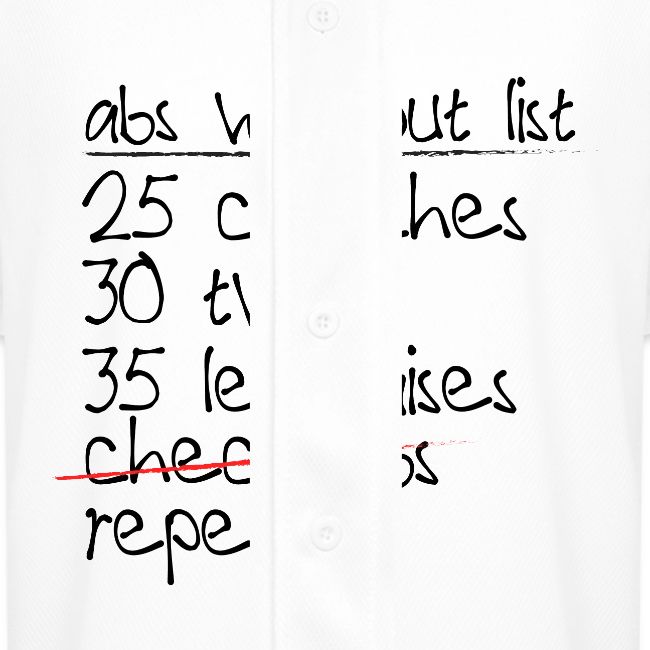 abs w out list
25 c hes
30 tw
35 le ises
chec bs
repe